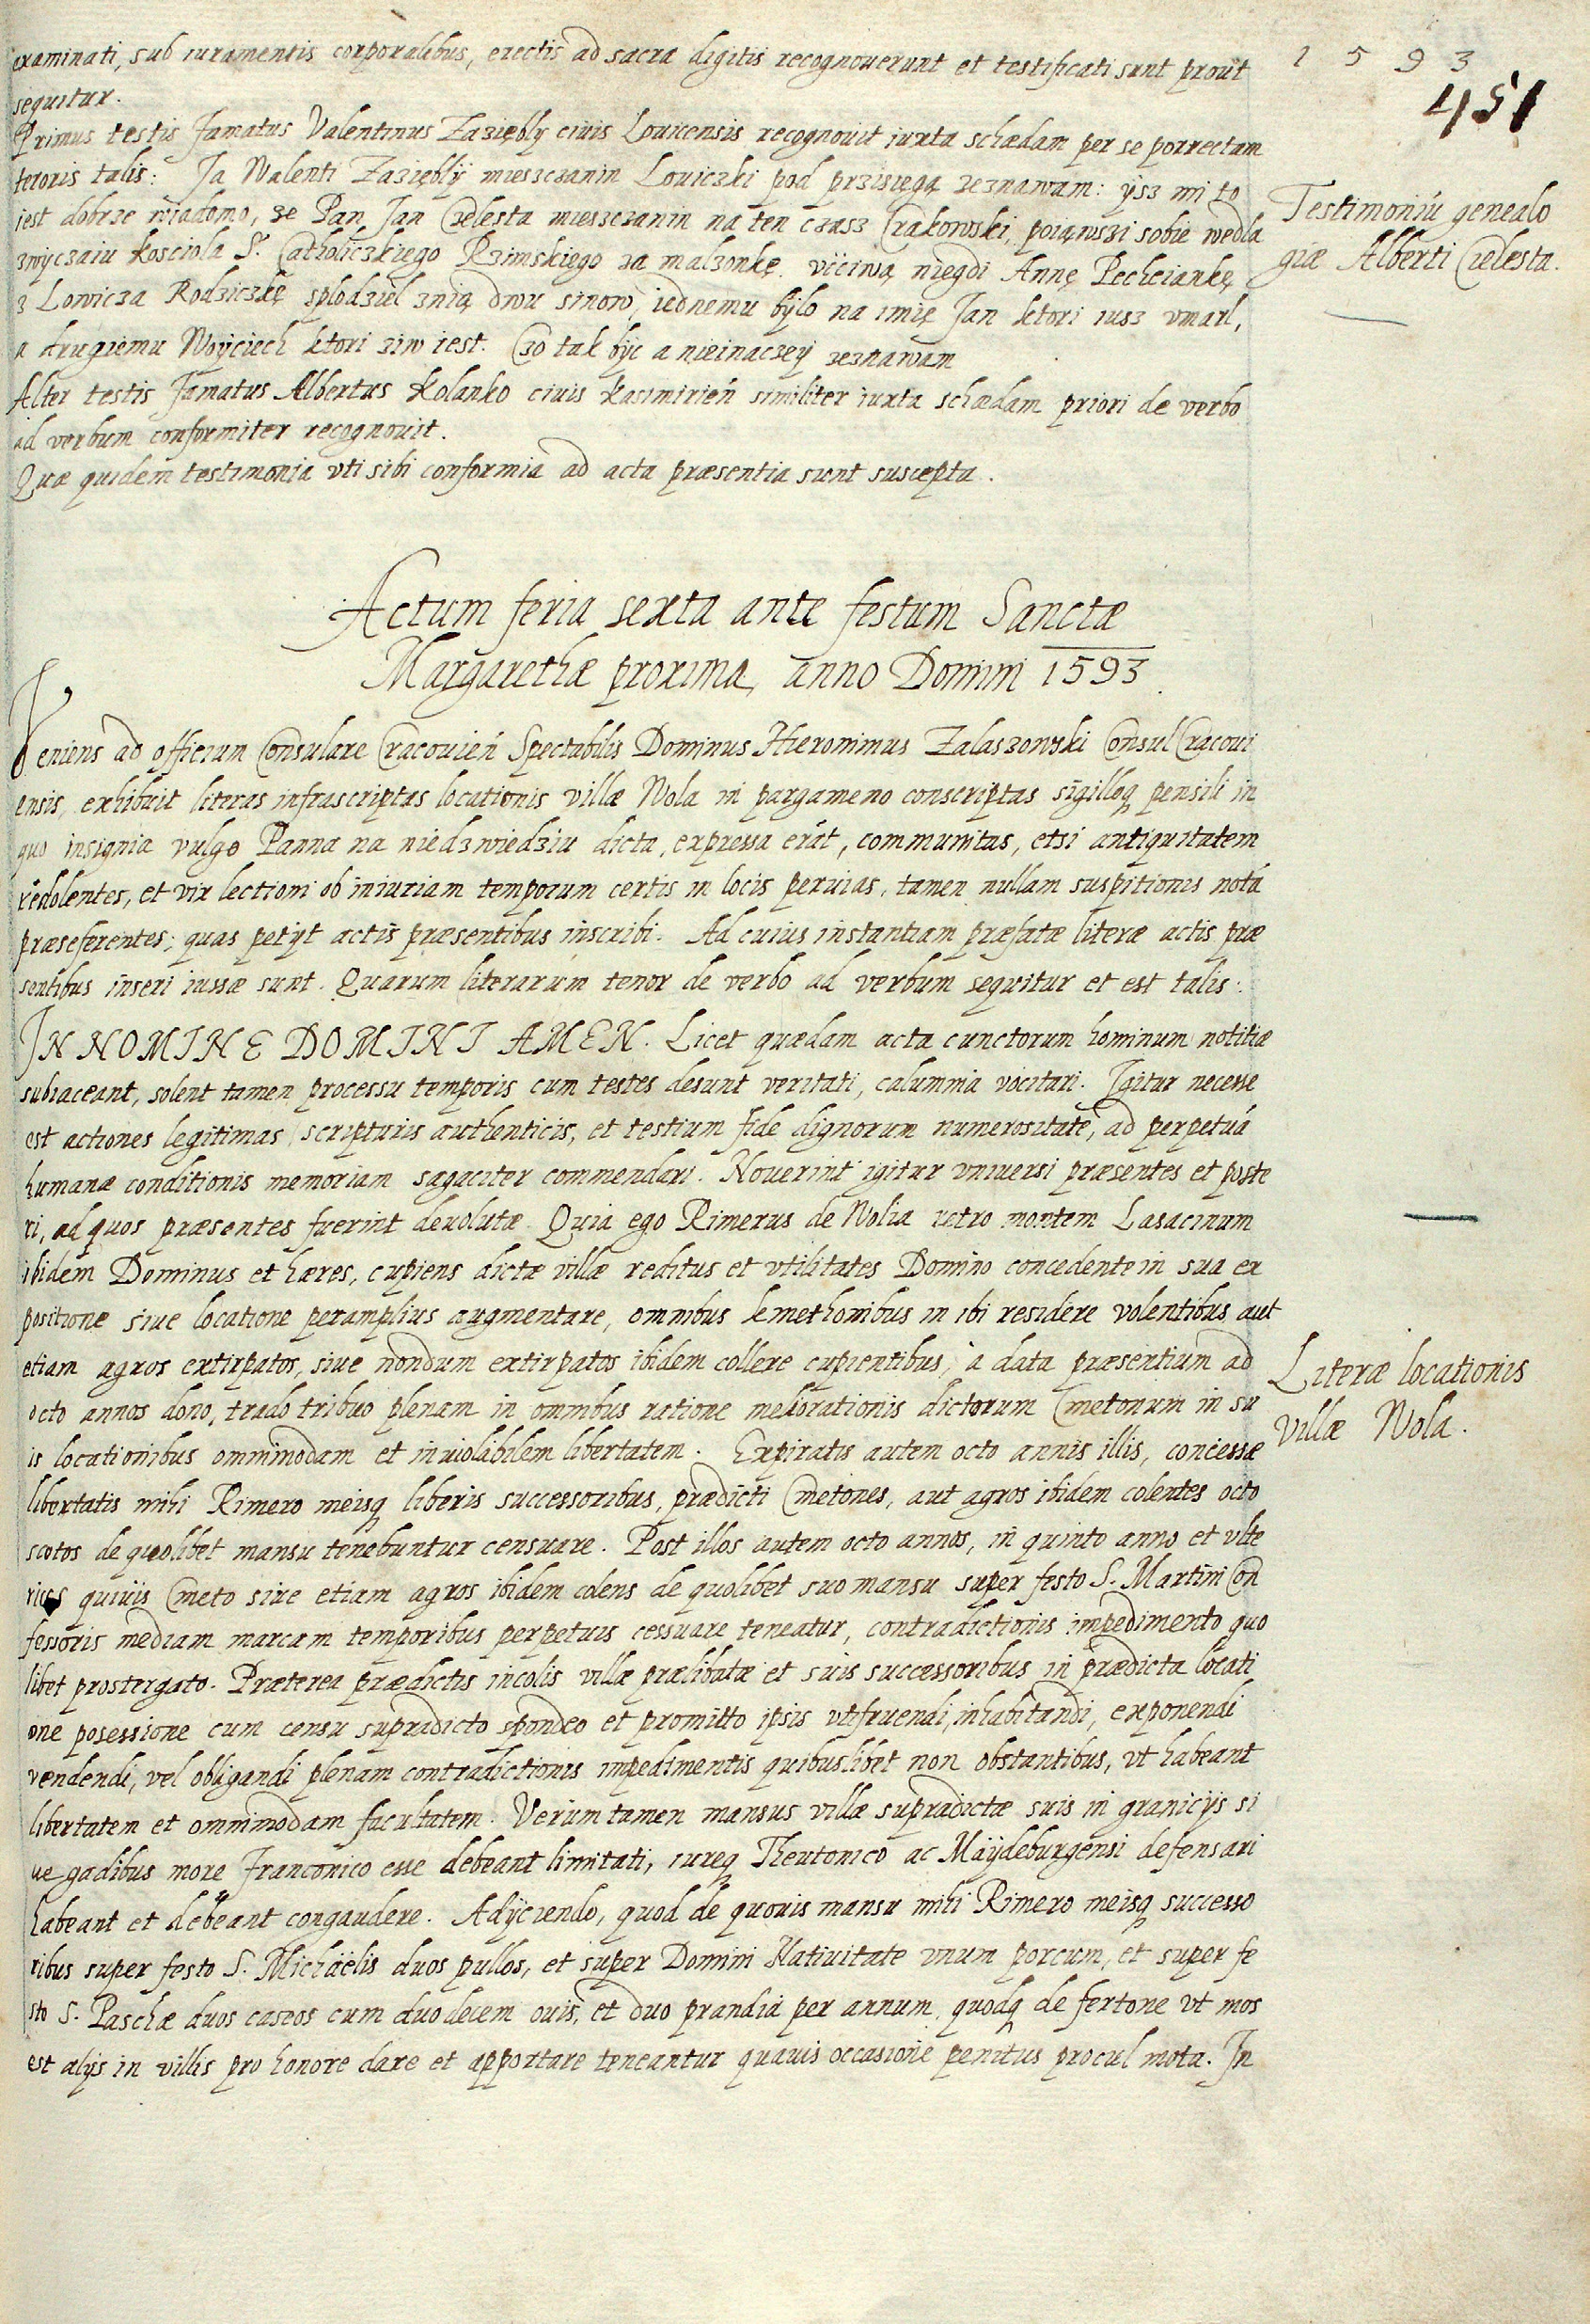 1593
451
examinati, sub iuramentis corporalibus, erectis ad sacra digitis recognouerunt et testificati sunt prout
sequitur.
Primus testis famatus Valentinus Zaziębly ciuis Louicensis recognouit iuxta schædam per se porrectam
tenoris talis: Ja Walenti Zaziębly miesczanin Louiczki pod przisięgą zeznawam: ysz mi to
iest dobrze wiadomo, ze Pan Jan Cielesta miesczanin na ten czasz Crakowski, poiąwszi sobie wedla
zwyczaiu kosciola S. Catholiczkiego Rzimskiego za malzonkę vcciwą niegdi Annę Pechciankę
z Lowicza Rodziczkę splodziel znią dwu sinow, iednemu bylo na imię Jan ktori iusz vmarl,
a drugiemu Woyciech ktori ziw iest. Czo tak byc a nieinaczey zeznawam
Alter testis famatus Albertus Kolanko ciuis Kasimirień similiter iuxta schædam priori de verbo
ad verbum conformiter recognouit.
Quæ quidem testimonia vti sibi conformia ad acta præsentia sunt suscepta.
Testimoniū genealo
giæ Alberti Cielesta.
Actum feria sexta ante festum Sanctæ
Margarethæ proxima, anno Domini 1593.
Veniens ad officium Consulare Cracouień Spectabilis Dominus Hieronimus Zalaszowski Consul Cracoui
ensis, exhibuit literas infrascriptas locationis villæ Wola in pargameno conscriptas sigilloq pensili in
quo insignia vulgo Panna na niedzwiedziu dicta, expressa erāt, communitas, etsi antiquitatem
redolentes, et vix lectioni ob iniuriam temporum certis in locis peruias, tamen nullam suspitionis notā
præseferentes; quas petÿt actis præsentibus inscribi. Ad cuius instantiam præfatæ literæ actis præ
sentibus inseri iussæ sunt. Quarum literarum tenor de verbo ad verbum sequitur et est talis:
IN NOMINE DOMINI AMEN. Licet quædam acta cunctorum hominum notitiæ
subiaceant, solent tamen processu temporis cum testes desunt veritati, calumnia vocitari. Igitur necesse
est actiones legitimas scripturis authenticis, et testium fide dignorum numerositate, ad perpetuā
humanæ conditionis memoriam sagaciter commendari. Nouerint igitur vniuersi præsentes et poste
ri, ad quos præsentes fuerint deuolutæ. Quia ego Rimerus de Wolia retro montem Lasacinum
ibidem Dominus et hæres, cupiens dictæ villæ reditus et vtilitates Domino concedente in sua ex
positione siue locatione peramplius augmentare, omnibus kmethonibus in ibi residere volentibus, aut
etiam agros extirpatos, siue nondum extirpatos ibidem collere cupientibus, a data præsentium ad
octo annos dono, trado tribuo plenam in omnibus ratione meliorationis dictorum Cmetonum in su
is locationibus omnimodam et inuiolabilem libertatem. Expiratis autem octo annis illis, concessæ
libertatis mihi Rimero meisq liberis successoribus, prædicti Cmetones, aut agros ibidem colentes octo
scotos de quolibet mansu tenebuntur censuare. Post illos autem octo annos, in quinto anno et vlte
rius quiuis Cmeto siue etiam agros ibidem colens de quolibet suo mansu super festo S. Martini Con
fessoris mediam marcam temporibus perpetuis cessuare teneatur, contradictionis impedimento quo
libet prostergato. Præterea prædictis incolis villæ prælibatæ et suis successoribus in prædicta locati
one posessione cum censu supradicto spondeo et promitto ipsis vtifruendi, inhabitandi, exponendi
vendendi, vel obligandi plenam contradictionis impedimentis quibuslibet non obstantibus, vt habeant
libertatem et omnimodam facultatem. Verum tamen mansus villæ supradictæ suis in granicÿs si
ue gadibus more Franconico esse debeant limitati, iureq Theutonico ac Maÿdeburgensi defensari
habeant et debeant congaudere. Adÿciendo, quod de quouis mansu mihi Rimero meisq successo
ribus super festo S. Michaëlis duos pullos, et super Domini Natiuitate vnum porcum, et super fe
sto S. Paschæ duos caseos cum duodecem ouis, et duo prandia per annum, quodq de fertone vt mos
est alÿs in villis pro honore dare et apportare teneantur quauis occasione penitus procul mota. In
Literæ locationis
villæ Wola.